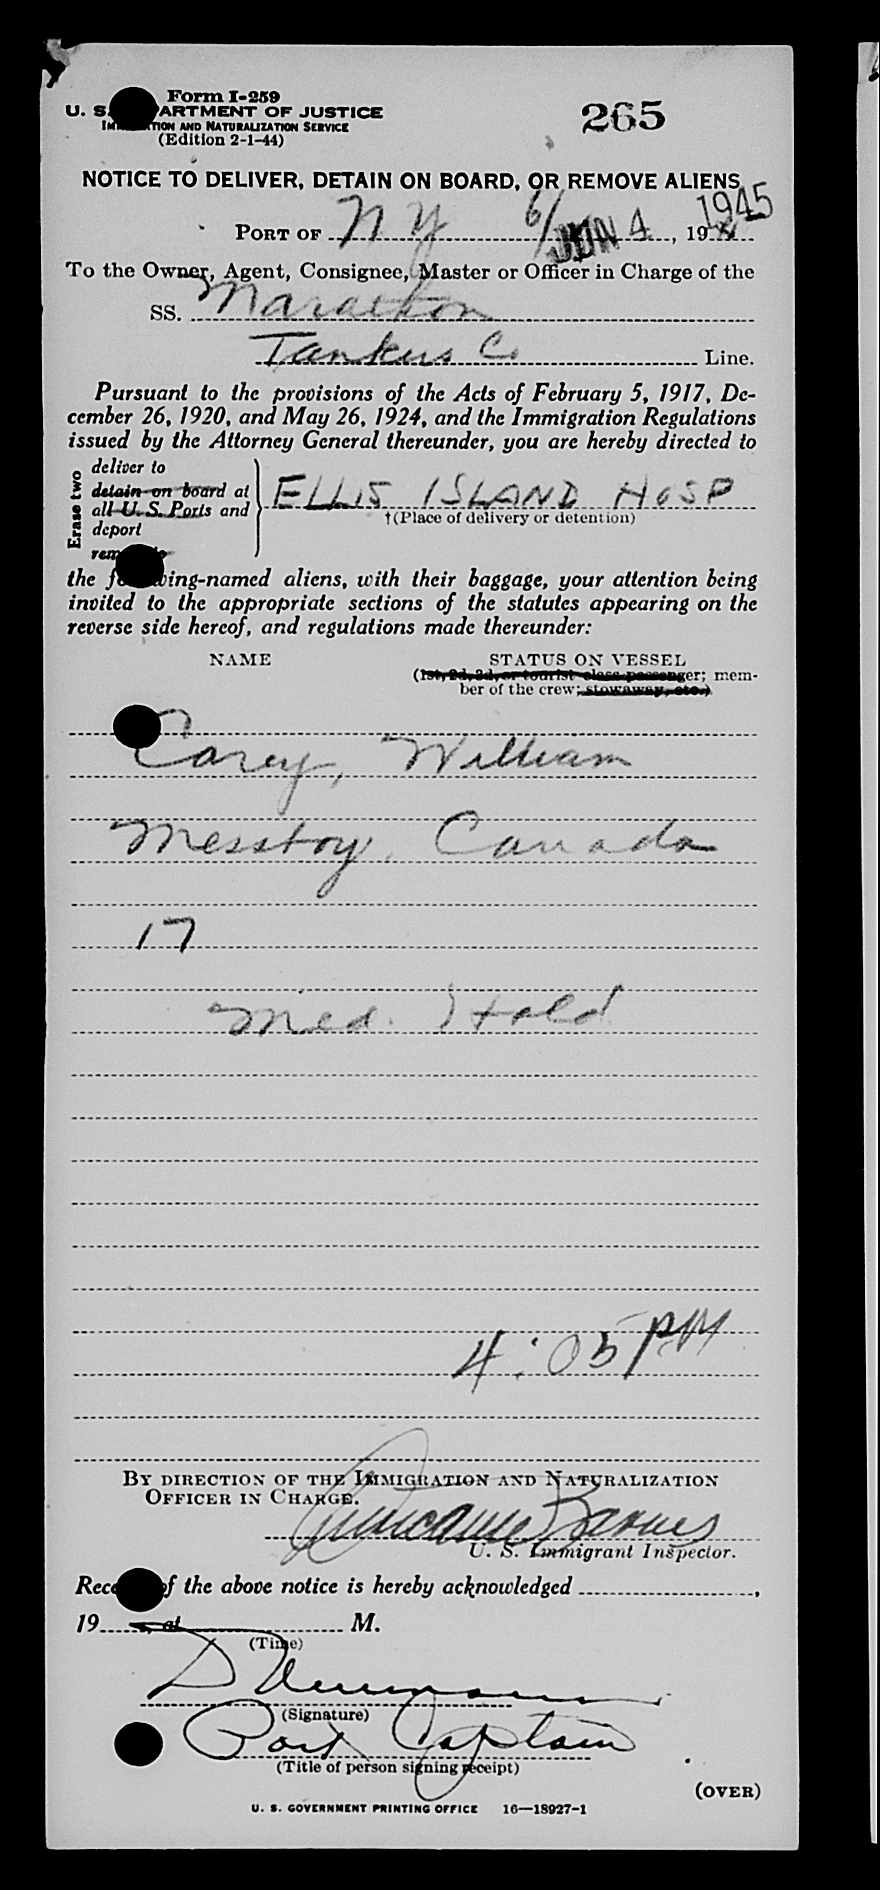 Form I-259
265
U. S. DEPARTMENT OF JUSTICE
IMMIGRATION AND NATURALIZATION SERVICE
(Edition 2-1-44)
NOTICE TO DELIVER, DETAIN ON BOARD, OR REMOVE ALIENS
PORT OF N Y 6/ JUN 4, 19 1945
To the Owner, Agent, Consignee, Master or Officer in Charge of the
SS. Marathon
Tankers Co Line.
Pursuant to the provisions of the Acts of February 5, 1917, De-
cember 26, 1920, and May 26, 1924, and the Immigration Regulations
issued by the Attorney General thereunder, you are hereby directed to
Erase two
deliver to
detain on board at
all U. S. Ports and
deport
remove to
ELLIS ISLAND HOSP
†(Place of delivery or detention)
the following-named aliens, with their baggage, your attention being
invited to the appropriate sections of the statutes appearing on the
reverse side hereof, and regulations made thereunder:
NAME STATUS ON VESSEL
(1st, 2d, 3d, or tourist class passenger; mem-
ber of the crew; stowaway, etc.)
Carey, William
Messboy, Canada
17
Med. Hold
4:05 PM
BY DIRECTION OF THE IMMIGRATION AND NATURALIZATION
OFFICER IN CHARGE.
Barnes
U. S. Immigrant Inspector.
Receipt of the above notice is hereby acknowledged ,
19 , at M.
(Time)
(Signature)
Port Captain
(Title of person signing receipt)
(OVER)
U. S. GOVERNMENT PRINTING OFFICE 16—18927-1